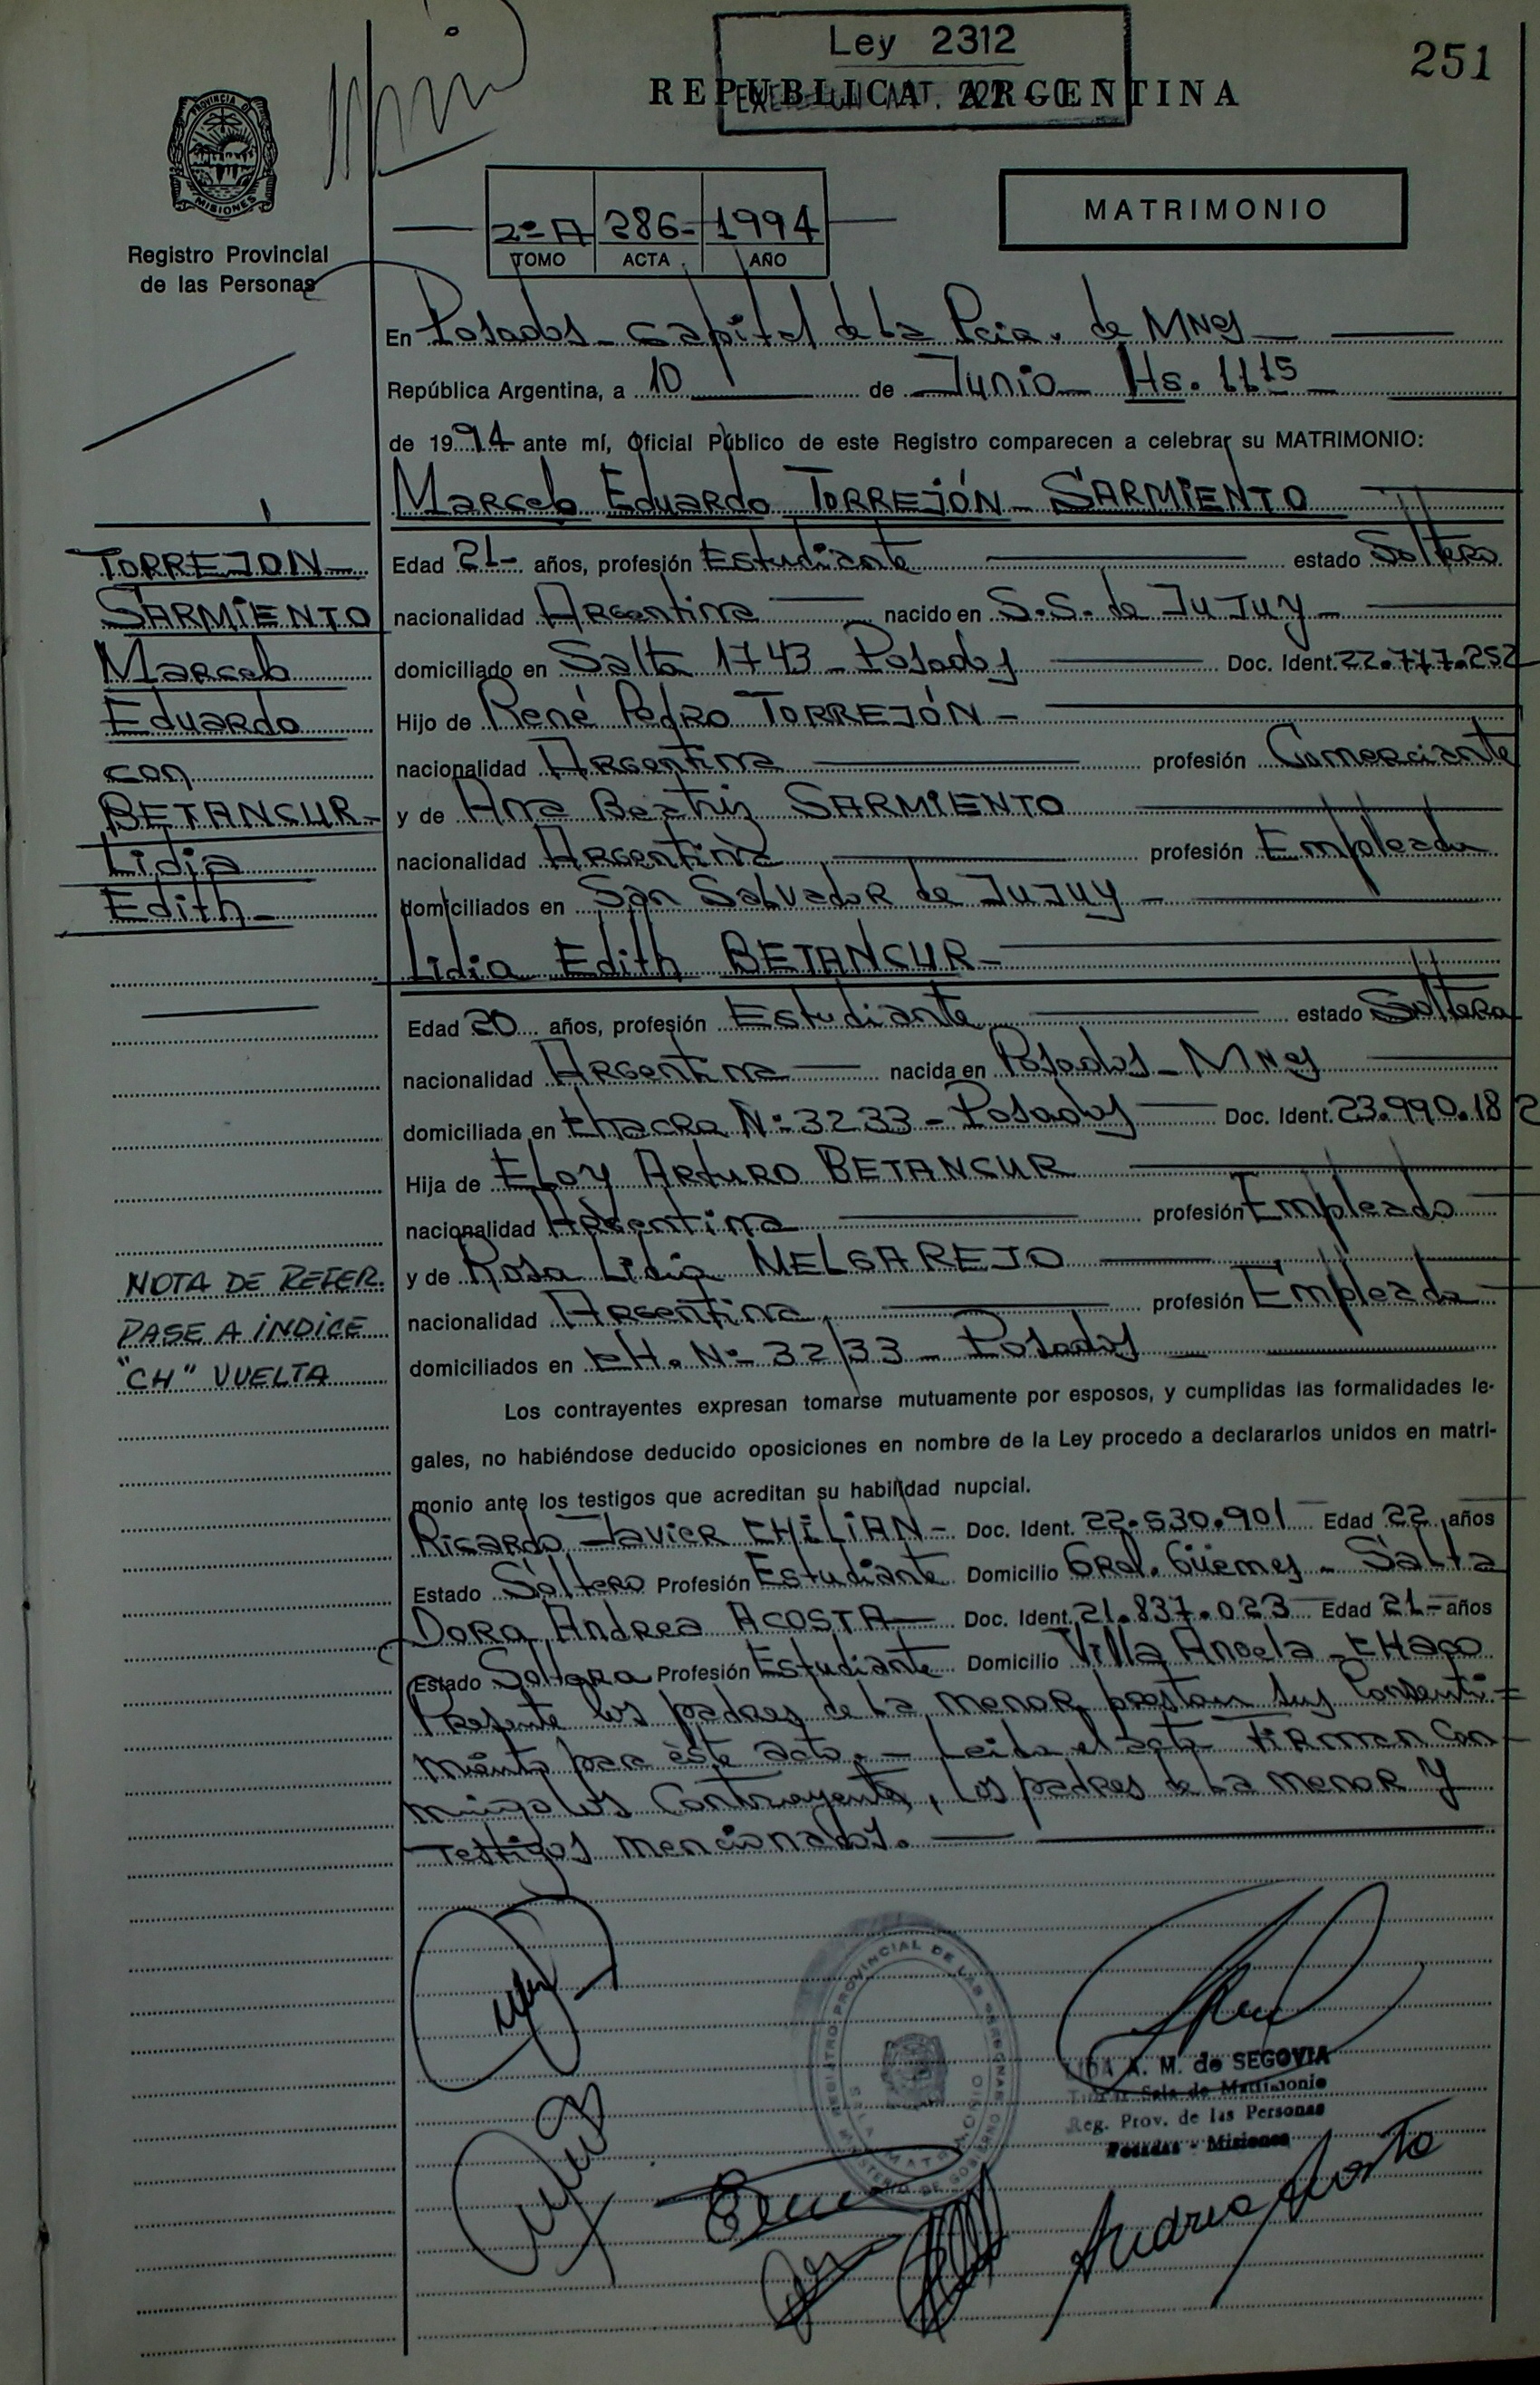 Ley 2312
251
REPUBLICA ARGENTINA
MISIONES
Registro Provincial
de las Personas
2º A 286- 1994
TOMO ACTA AÑO
MATRIMONIO
En Posadas - Capital de La Pcia. de Mnes
República Argentina, a 10 de Junio Hs. 11 15
de 1994 ante mí, Oficial Público de este Registro comparecen a celebrar su MATRIMONIO:
Marcelo Eduardo TORREJÓN - SARMIENTO
Edad 21- años, profesión Estudiante estado Soltero
nacionalidad Argentina nacido en S.S. de JUJUY
domiciliado en Salta 1743 - Posadas Doc. Ident. 22.777.252
Hijo de René Pedro TORREJÓN -
nacionalidad Argentina profesión Comerciante
y de Ana Beatriz SARMIENTO
nacionalidad Argentina profesión Empleada
domiciliados en San Salvador de JUJUY
Lidia Edith BETANCUR -
Edad 20 años, profesión Estudiante estado Soltera
nacionalidad Argentina nacida en Posadas - Mnes
domiciliada en Chacra Nº 32 33 - Posadas Doc. Ident. 23.990.182
Hija de Eloy Arturo BETANCUR
nacionalidad Argentina profesión Empleado
y de Rosa Lidia MELGAREJO
nacionalidad Argentina profesión Empleada
domiciliados en CH. Nº 32/33 - Posadas
Los contrayentes expresan tomarse mutuamente por esposos, y cumplidas las formalidades le-
gales, no habiéndose deducido oposiciones en nombre de la Ley procedo a declararlos unidos en matri-
monio ante los testigos que acreditan su habilidad nupcial.
Ricardo Javier CHILIAN - Doc. Ident. 22.530.901 Edad 22 años
Estado Soltero Profesión Estudiante Domicilio Gral. Güemes - Salta
Dora Andrea ACOSTA Doc. Ident. 21.837.023 Edad 21- años
Estado Soltera Profesión Estudiante Domicilio Villa Angela - CHaco
Presente los padres de La menor prestan sus Consenti=
miento para éste acto. - Leida el acta Firman Con-
migo los Contrayentes, Los padres de La menor y
testigos mencionados.
TORREJON
SARMIENTO
Marcelo
Eduardo
con
BETANCUR-
Lidia
Edith-
NOTA DE REFER.
PASE A INDICE
"CH" VUELTA
REGISTRO PROVINCIAL DE LAS PERSONAS
MINISTERIO DE GOBIERNO
SALA MATRIMONIO
LIDA A. M. de SEGOVIA
Titular Sala de Matrimonio
Reg. Prov. de las Personas
Posadas - Misiones
Andrea Acosta